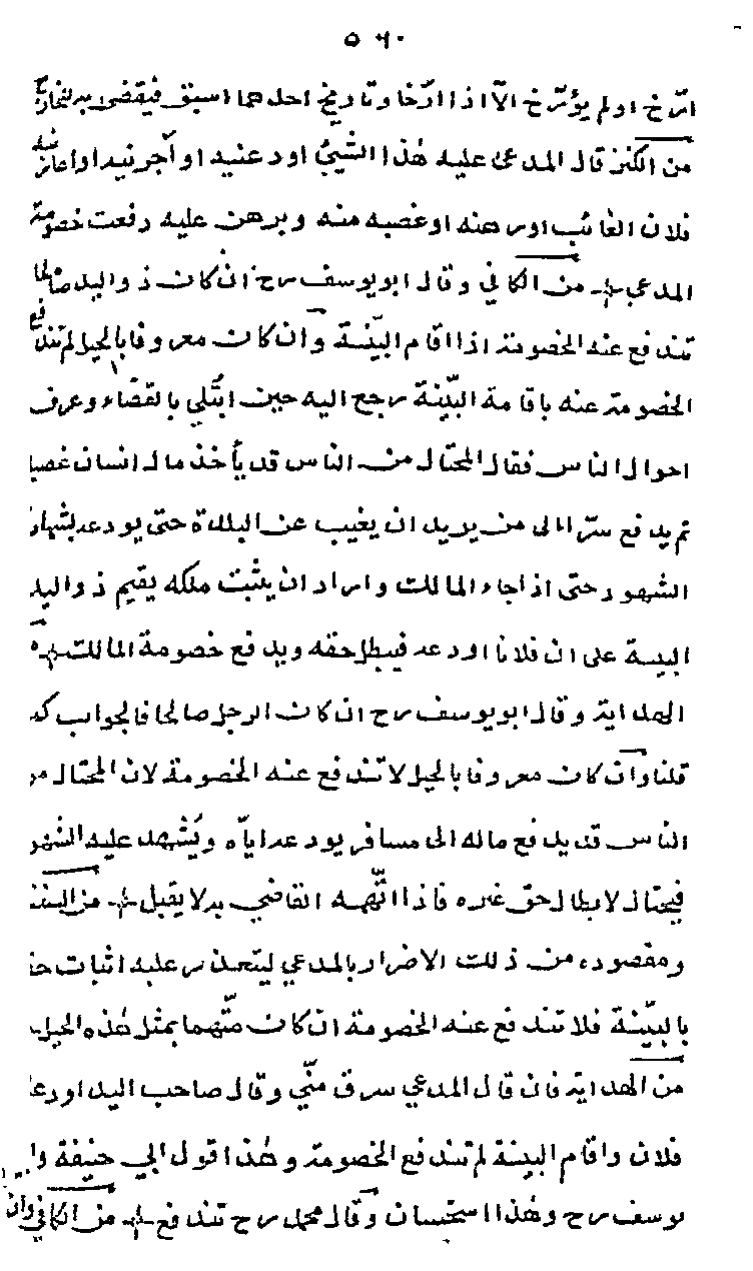 ٥٦٠
ارّخ او لم يؤرّخ الّا اذا ارّخا وتاريخ احدهما اسبق فيقضى به
من الكنز قال المدعى عليه هٰذا الشيئ اودعنيه او آجرنيه او اعارنيه
فلان الغائب او رهنه او غصبه منه وبرهن عليه دفعت خصومة
المدعي من الكافي وقال ابو يوسف رح ان كان ذو اليد صالحا
تندفع عنه الخصومة اذا اقام البيّنة وان كان معروفا بالحيل لم تندفع
الخصومة عنه باقامة البيّنة رجع اليه حين ابتُلي بالقضاء وعرف
احوال الناس فقال المحتال من الناس قد يأخذ مال انسان غصبا
ثم يدفع سرّا الى من يريد ان يغيب عن البلدة حتى يودعه بشهادة
الشهود حتى اذا جاء المالك واراد ان يثبت ملكه يقيم ذو اليد
البينة على ان فلانا اودعه فيبطل حقه ويدفع خصومة المالك
الهداية وقال ابو يوسف رح ان كان الرجل صالحا فالجواب كما
قلنا وان كان معروفا بالحيل لا تندفع عنه الخصومة لان المحتال من
الناس قد يدفع ماله الى مسافر يودعه اياّه ويُشهد عليه الشهود
فيحتال لابطال حق غيره فاذا اتّهمه القاضي به لا يقبل
ومقصوده من ذلك الاضرار بالمدعي ليتعذر عليه اثبات حقه
بالبيّنة فلا تندفع عنه الخصومة ان كان متّهما بمثل هٰذه الحيل
من الهداية فان قال المدعي سرق منّي وقال صاحب اليد اودعني
فلان واقام البينة لم تندفع الخصومة وهٰذا قول ابي حنيفة وابي
يوسف رح وهٰذا استحسان وقال محمد رح تندفع من الكافي وان